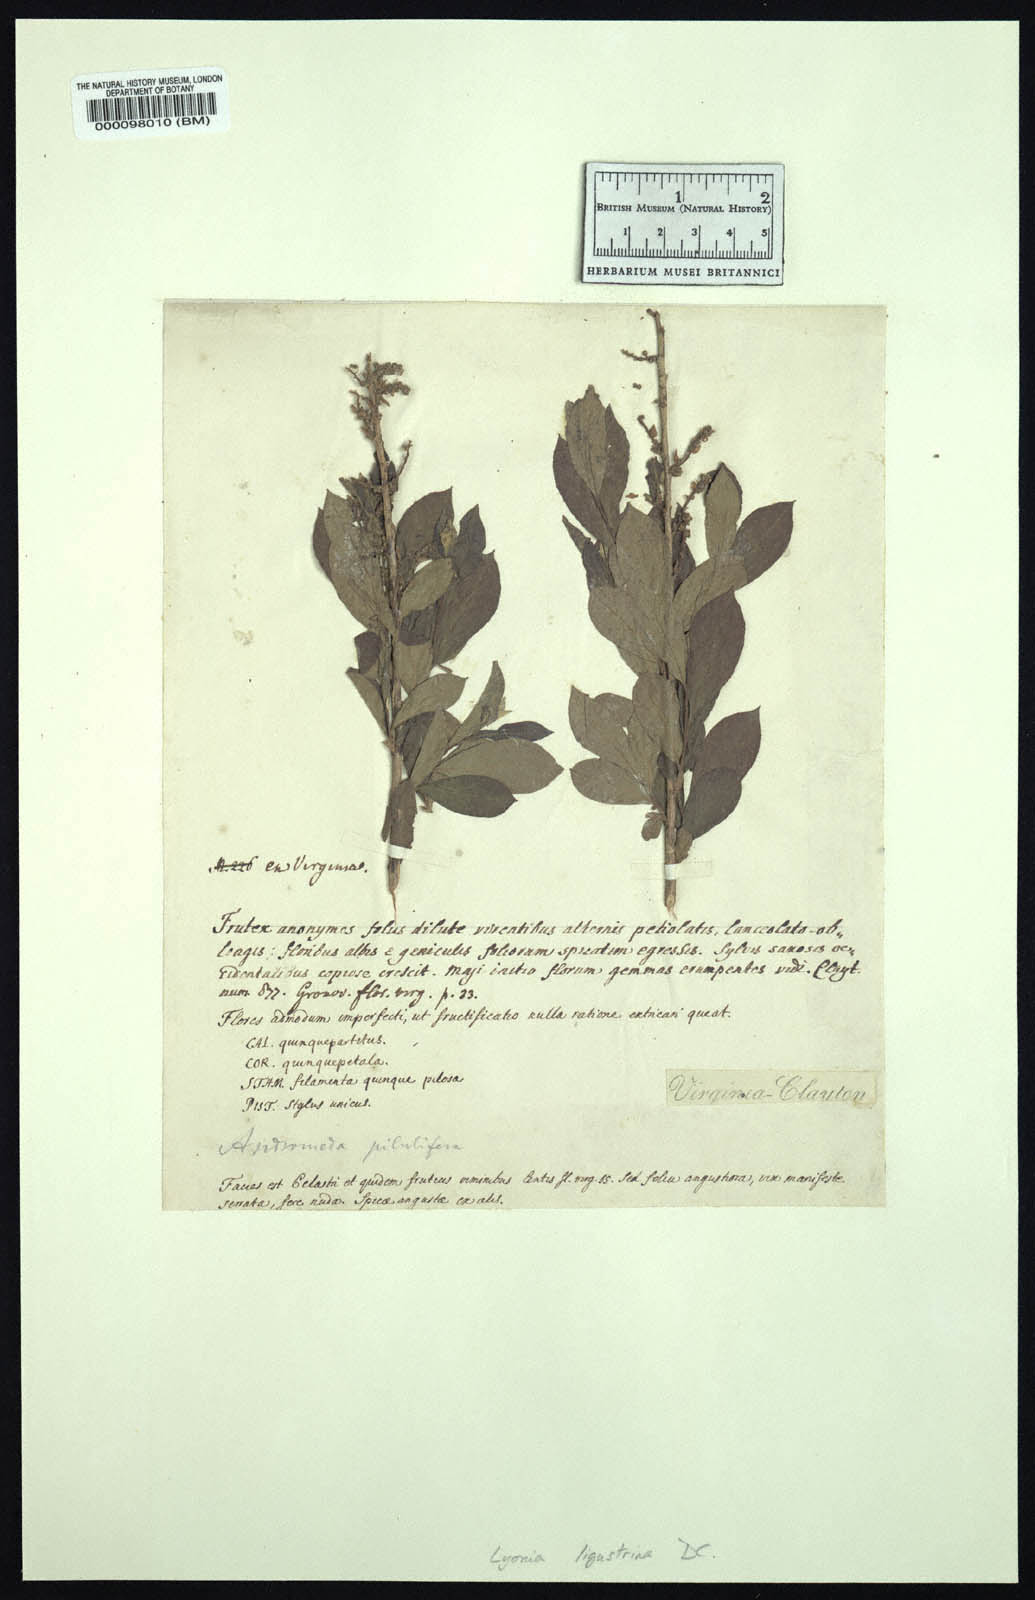 THE NATURAL HISTORY MUSEUM, LONDON
DEPARTMENT OF BOTANY
000098010 (BM)
1 2
BRITISH MUSEUM (NATURAL HISTORY)
1 2 3 4 5
HERBARIUM MUSEI BRITANNICI
N. 226 ex Virginia.
Frutex anonymos foliis dilute virentibus alternis petiolatis, lanceolato-ob=
longis: floribus albis e geniculis foliorum spicatim egressis. Sylvis saxosis oc=
cidentalibus copiose crescit. Maji initio florum gemmas erumpentes vidi. Clayt.
num. 877. Gronov. flor. virg. p. 33.
Flores admodum imperfecti, ut fructificatio nulla ratione extricari queat.
CAL. quinquepartitus.
COR. quinquepetala.
STAM. filamenta quinque pilosa
PIST. Stylus unicus.
Virginia-Clayton
Andromeda pilulifera
Facies est Celastri et quidem fruticis viminibus lentis fl. virg. 15. Sed folia angustiora, vix manifeste
serrata, fere nuda. Spicae angustae ex alis.
Lyonia ligustrina DC.